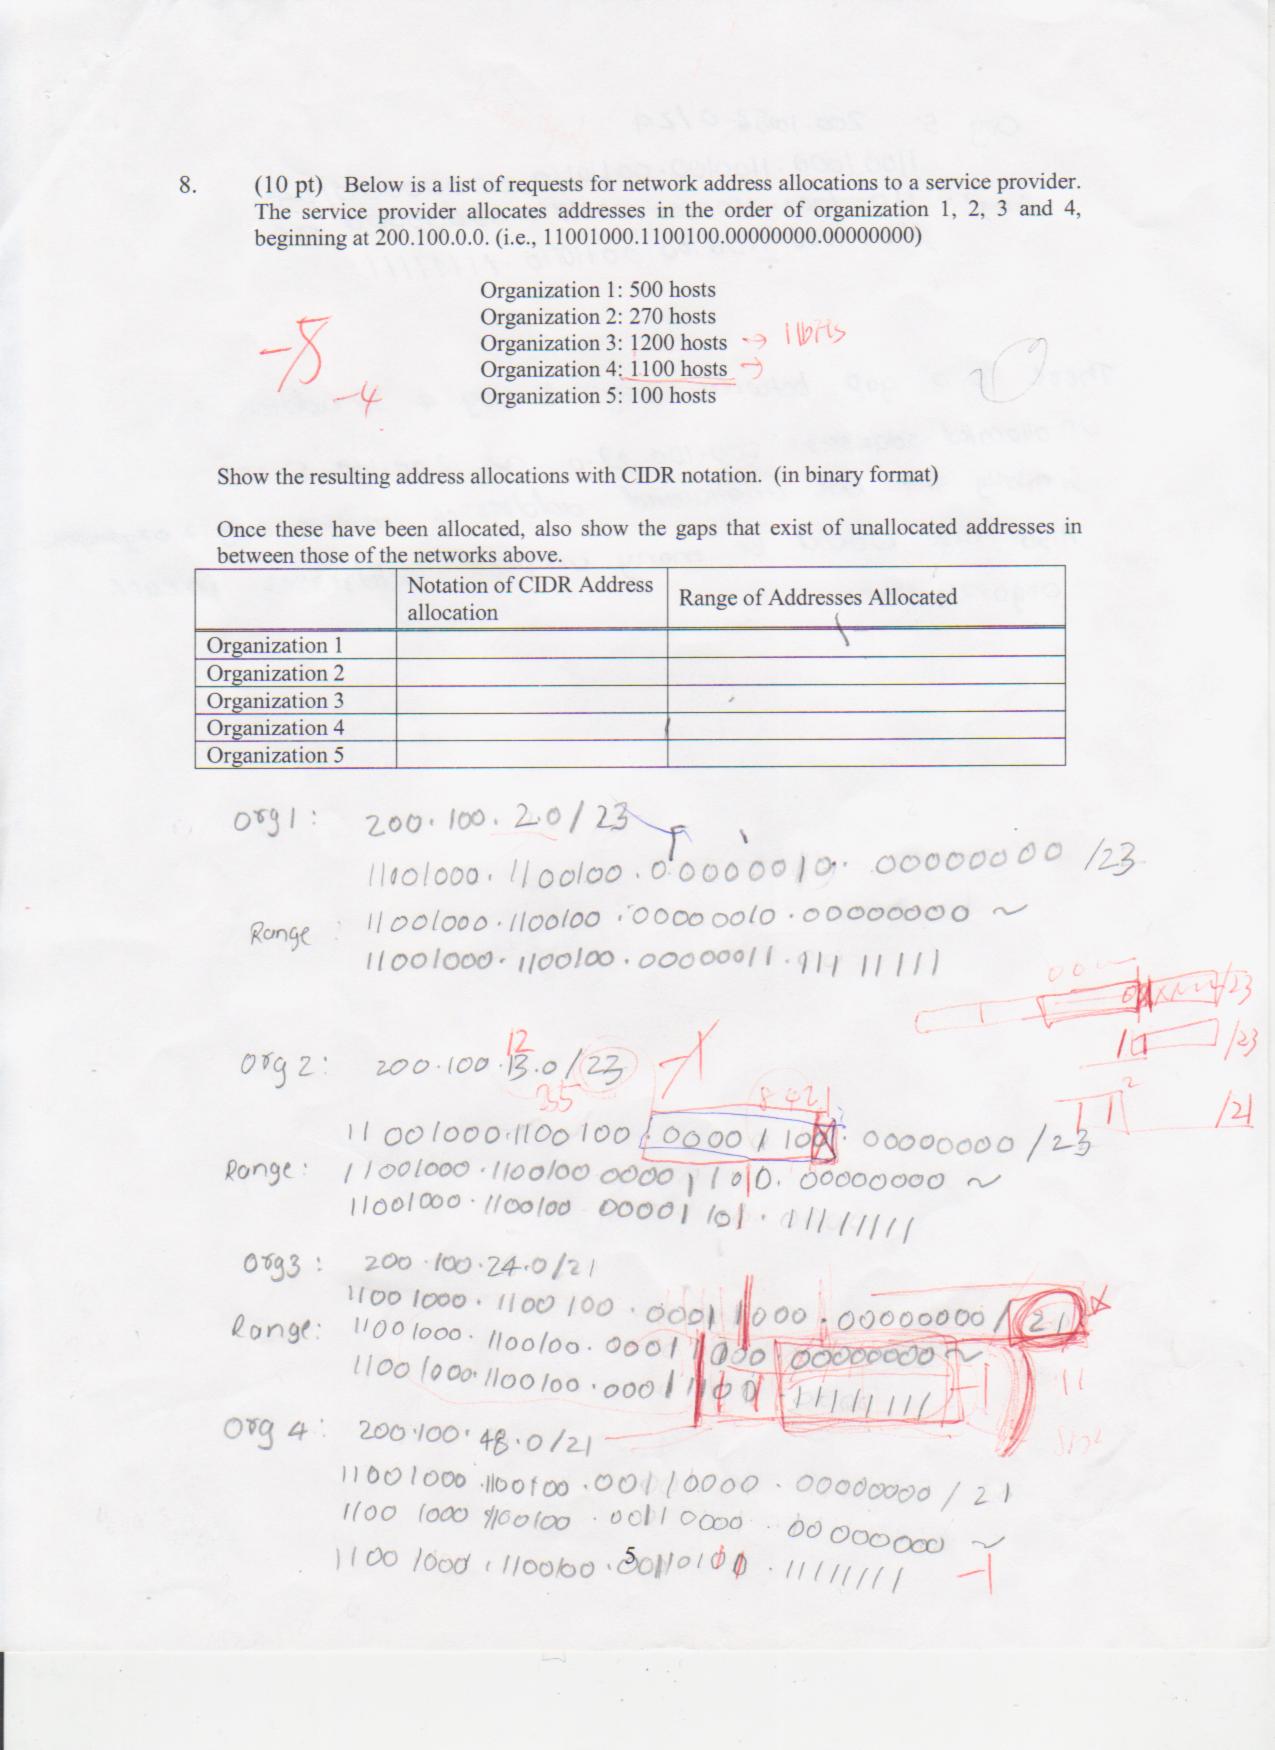 8. (10 pt) Below is a list of requests for network address allocations to a service provider.
The service provider allocates addresses in the order of organization 1, 2, 3 and 4,
beginning at 200.100.0.0. (i.e., 11001000.1100100.00000000.00000000)
Organization 1: 500 hosts
Organization 2: 270 hosts
Organization 3: 1200 hosts → 11bits
Organization 4: 1100 hosts →
Organization 5: 100 hosts
-4
Show the resulting address allocations with CIDR notation. (in binary format)
Once these have been allocated, also show the gaps that exist of unallocated addresses in
between those of the networks above.
Notation of CIDR Address allocation
Range of Addresses Allocated
Organization 1
Organization 2
Organization 3
Organization 4
Organization 5
org 1: 200.100.2.0/23
11001000.1100100.00000010.00000000 /23
Range: 11001000.1100100.00000010.00000000 ~
11001000.1100100.00000011.11111111
/23
/23
/21
12
org 2: 200.100.13.0/23 -1
8421
11001000.1100100.0000110.00000000 /23
Range: 11001000.1100100 00001100.00000000 ~
11001000.1100100 00001101.11111111
org3: 200.100.24.0/21
11001000.1100100.00011000.00000000/21
Range: 11001000.1100100.00011000.00000000 ~
11001000.1100100.00011111.11111111 -1
11
org 4: 200.100.48.0/21
11001000.1100100.00110000.00000000/21
11001000 1100100.00110000.00000000 ~
11001000.1100100.00110111.11111111 -1
5